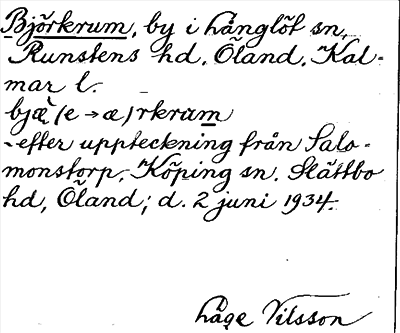 Björkrum, by i Långlöt sn,
Runstens hd, Öland, Kal-
mar l.
bjæ̀ (e → æ) rkram
- efter uppteckning från Salo-
monstorp, Köping sn. Slättbo
hd, Öland; d. 2 juni 1934.
Åge Nilsson